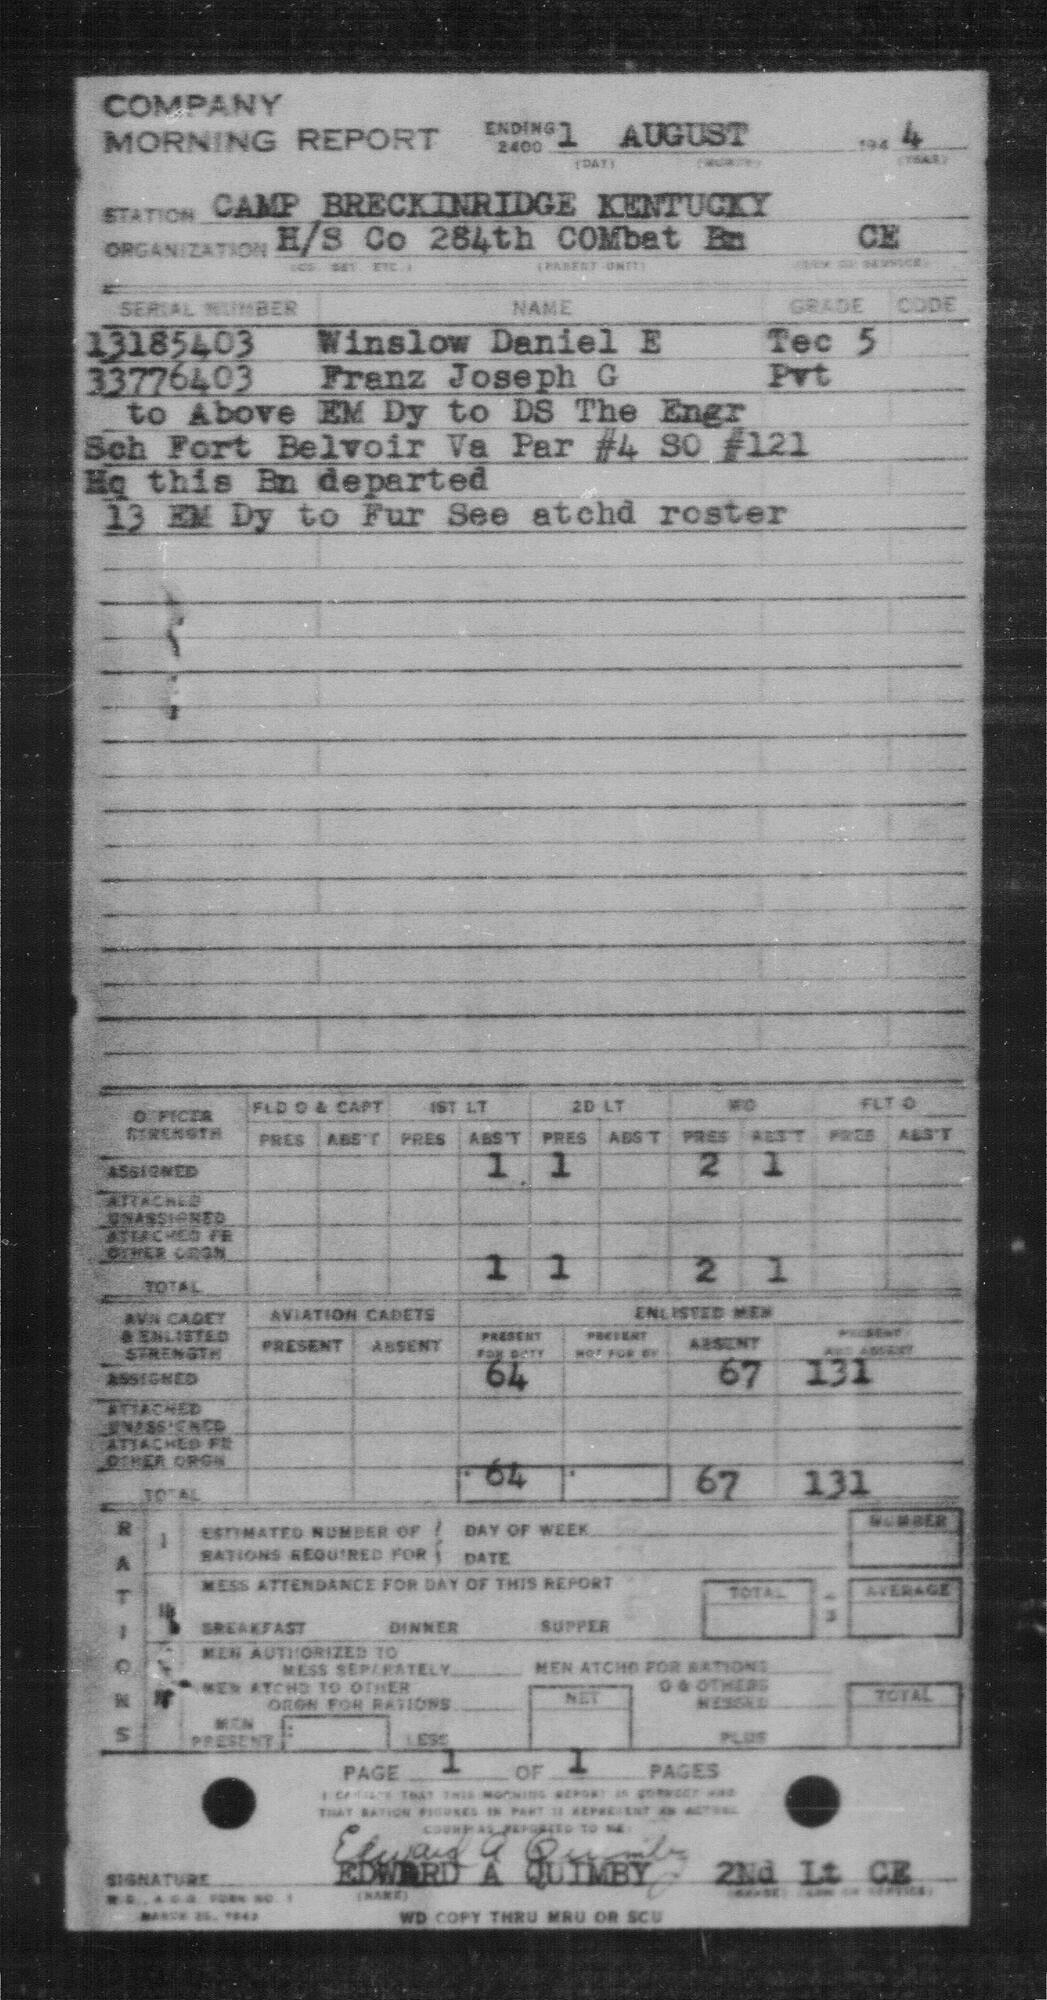 COMPANY
MORNING REPORT ENDING 2400 1 AUGUST 194 4
(DAY) (MONTH) (YEAR)
STATION CAMP BRECKINRIDGE KENTUCKY
ORGANIZATION H/S Co 284th COMbat Bn CE
(CO. DET. ETC.) (PARENT UNIT) (ARM OR SERVICE)
SERIAL NUMBER NAME GRADE CODE
13185403 Winslow Daniel E Tec 5
33776403 Franz Joseph G Pvt
to Above EM Dy to DS The Engr
Sch Fort Belvoir Va Par #4 SO #121
Hq this Bn departed
13 EM Dy to Fur See atchd roster
OFFICER STRENGTH FLD O & CAPT 1ST LT 2D LT WO FLT O
PRES ABS'T PRES ABS'T PRES ABS'T PRES ABS'T PRES ABS'T
ASSIGNED 1 1 2 1
ATTACHED UNASSIGNED
ATTACHED FR OTHER ORGN
TOTAL 1 1 2 1
AVN CADET & ENLISTED STRENGTH AVIATION CADETS ENLISTED MEN
PRESENT ABSENT PRESENT FOR DUTY PRESENT NOT FOR DY ABSENT PRESENT AND ABSENT
ASSIGNED 64 67 131
ATTACHED UNASSIGNED
ATTACHED FR OTHER ORGN
TOTAL 64 67 131
RATIONS
1 ESTIMATED NUMBER OF DAY OF WEEK NUMBER
RATIONS REQUIRED FOR DATE
MESS ATTENDANCE FOR DAY OF THIS REPORT TOTAL ÷ 3 AVERAGE
BREAKFAST DINNER SUPPER
MEN AUTHORIZED TO
MESS SEPARATELY MEN ATCHD FOR RATIONS
MEN ATCHD TO OTHER ORGN FOR RATIONS NET O & OTHERS MESSED TOTAL
MEN PRESENT LESS PLUS
PAGE 1 OF 1 PAGES
I CERTIFY THAT THIS MORNING REPORT IS CORRECT AND
THAT RATION FIGURES IN PART II REPRESENT AN ACTUAL
COUNT AS REPORTED TO ME:
Edward A Quimby
SIGNATURE EDWARD A QUIMBY 2Nd Lt CE
(NAME) (GRADE) (ARM OR SERVICE)
W.D., A.G.O. FORM NO. 1
MARCH 25, 1943
WD COPY THRU MRU OR SCU